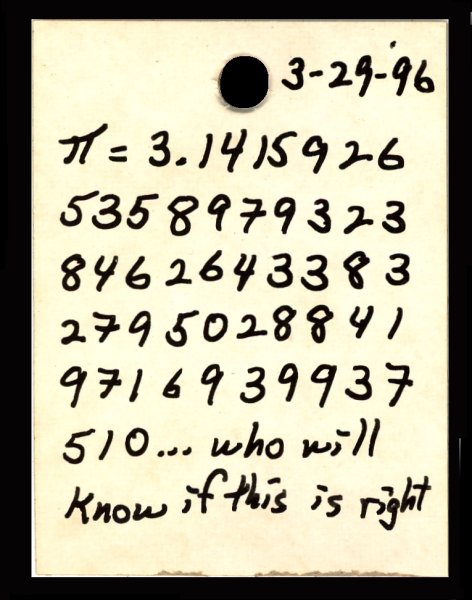 3-29-96
π = 3.1415926
5358979323
8462643383
2795028841
9716939937
510... who will
know if this is right